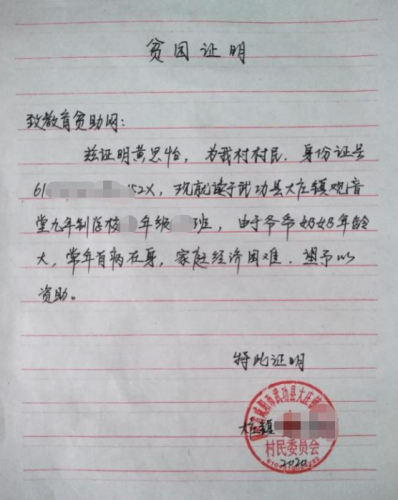 贫困证明
致教育资助网：
兹证明黄思怡，为我村村民．身份证号
61 52X，现就读于武功县大庄镇观音
堂九年制学校 年级 班，由于爷爷奶奶年龄
大，常年有病在身，家庭经济困难．望予以
资助。
特此证明
咸阳市武功县大庄镇
大庄镇
村民委员会
2020